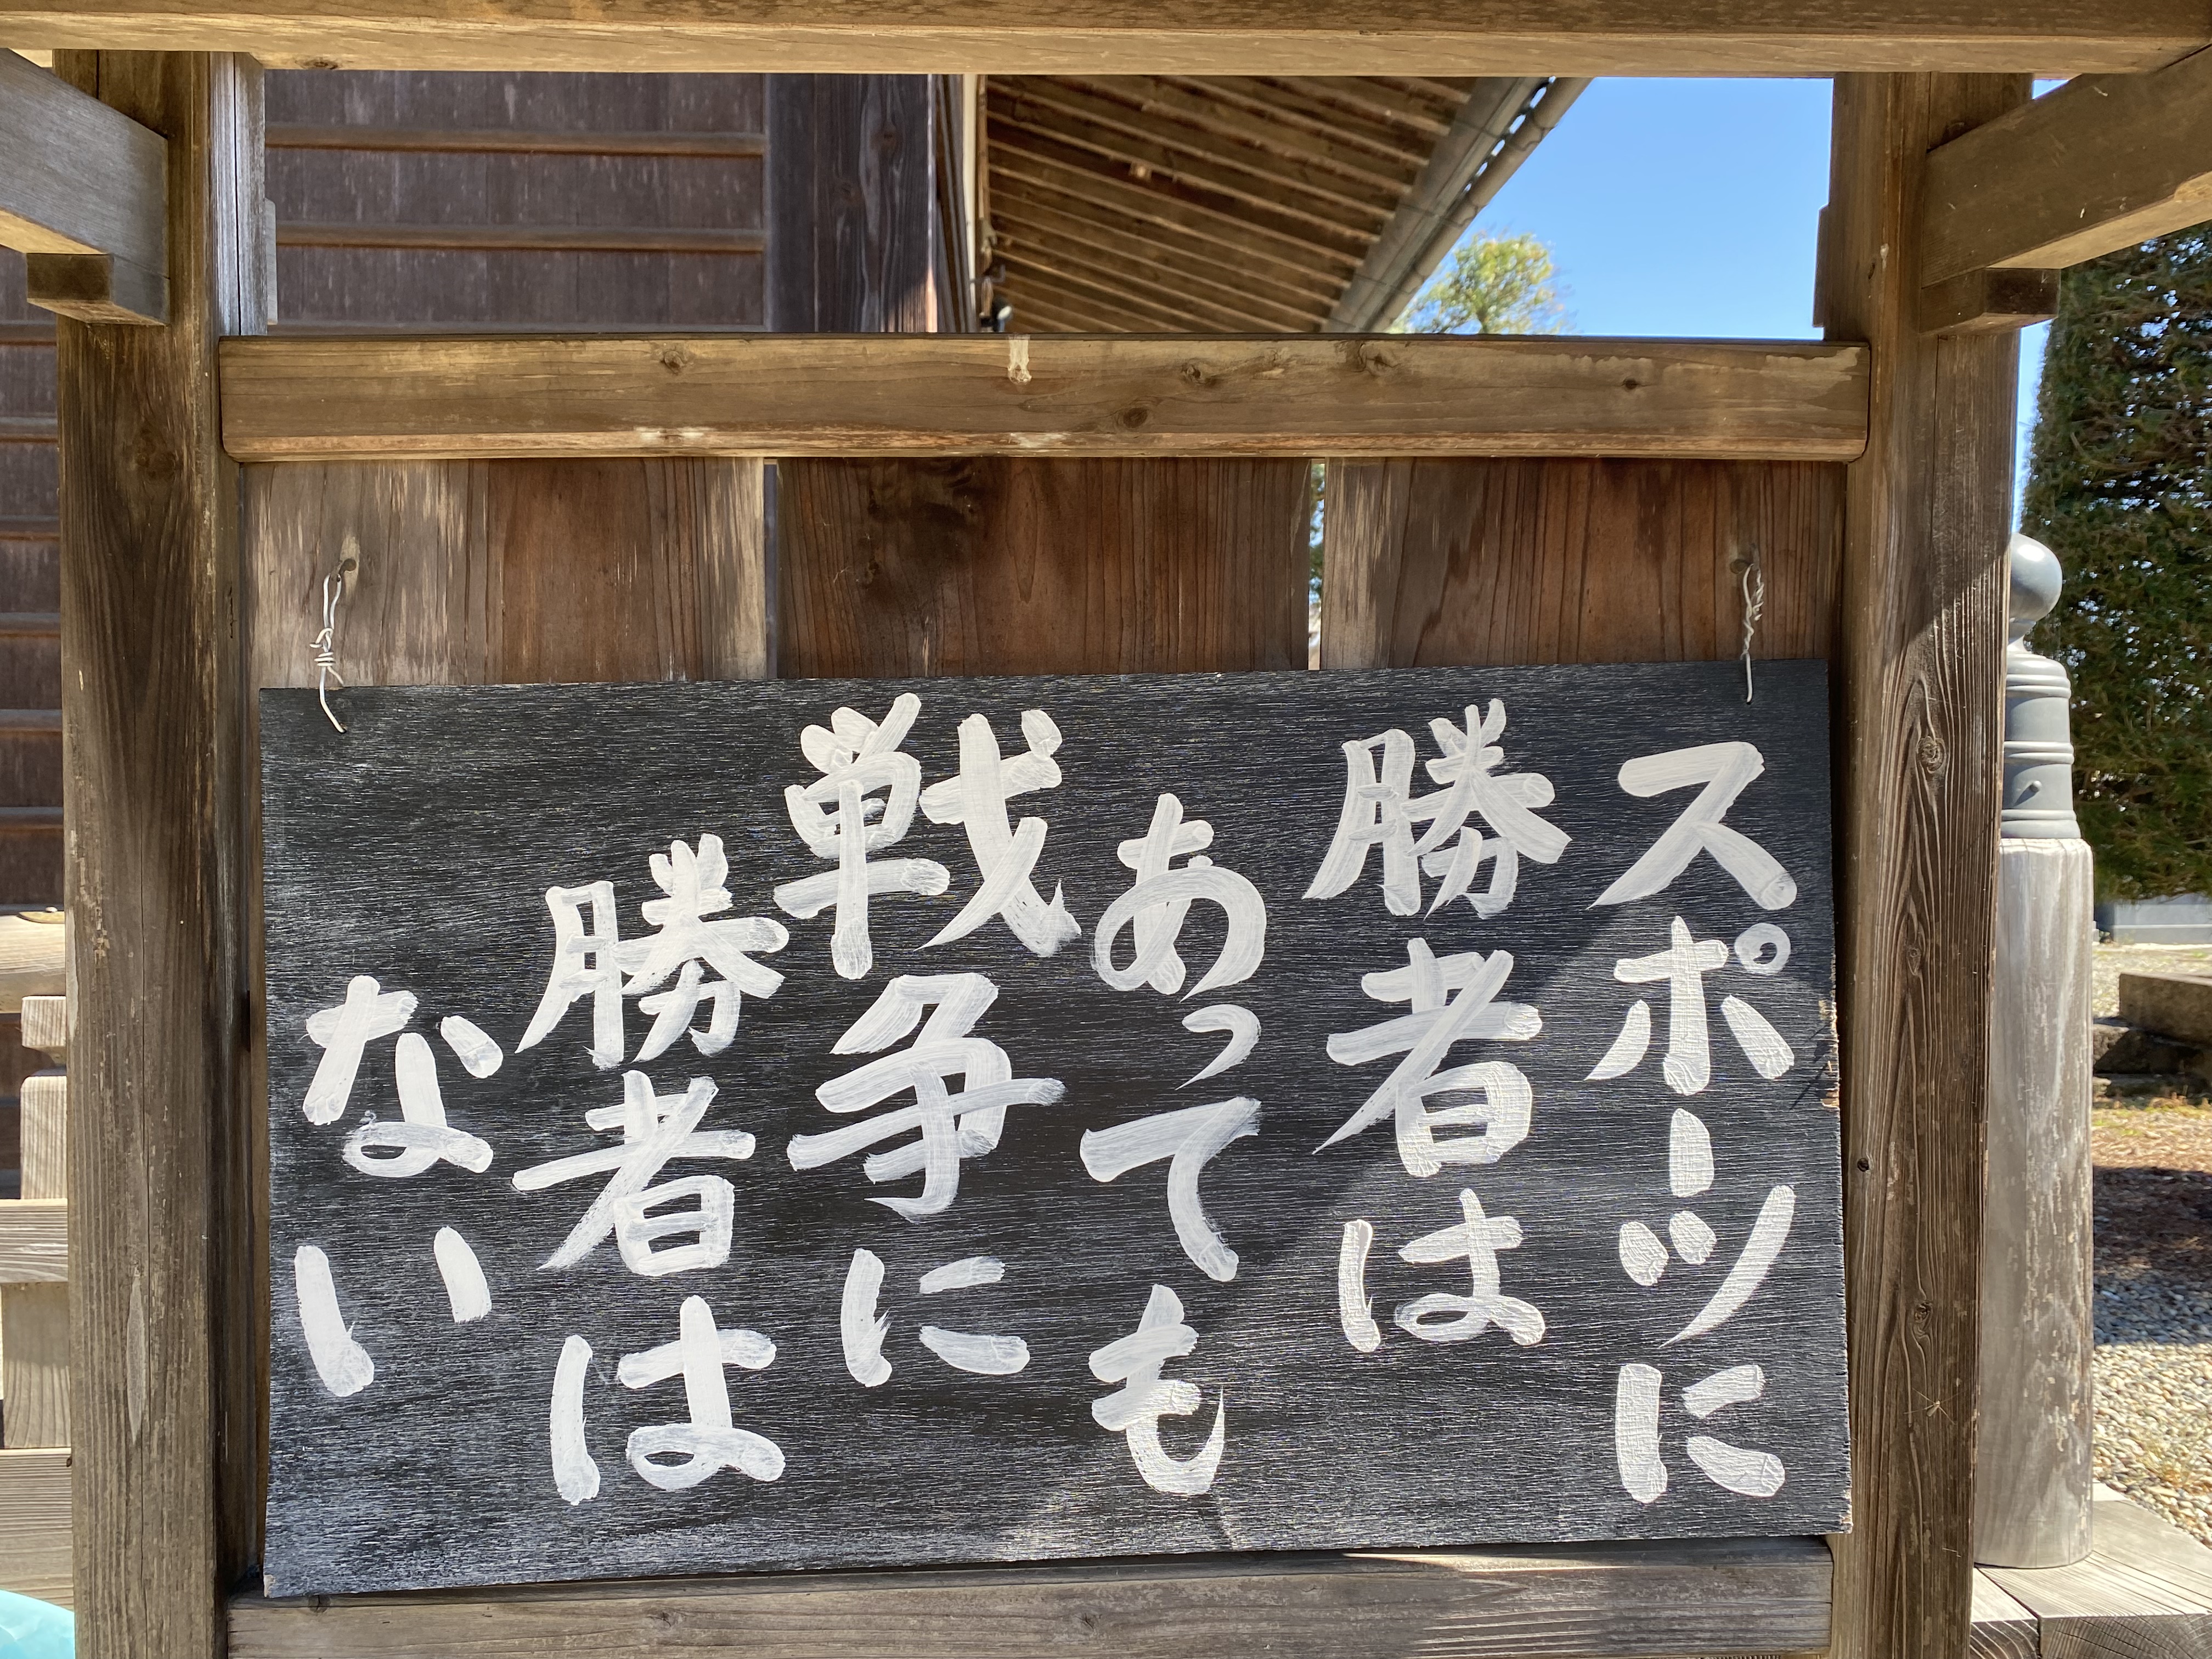 スポーツに
勝者は
あっても
戦争に
勝者は
ない